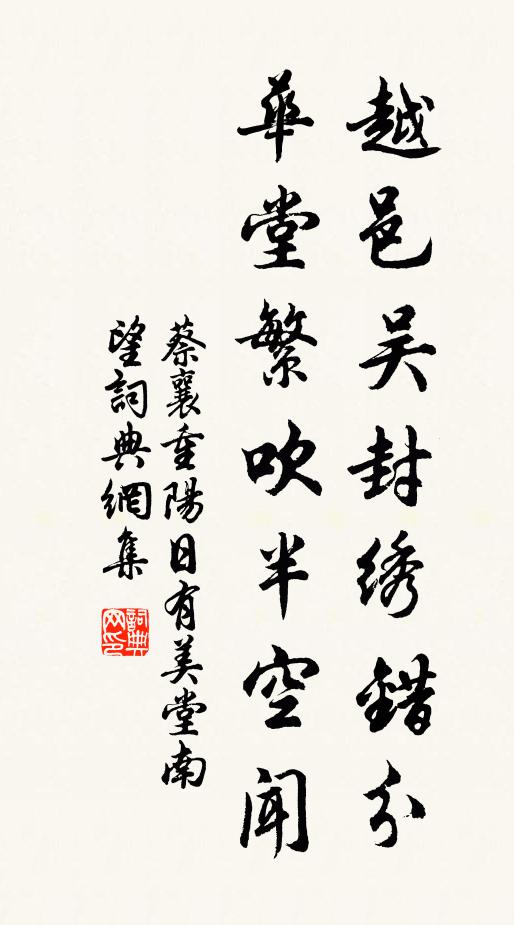 越邑吴封绣錯分
華堂繁吹半空聞
蔡襄重陽日有美堂南
望詞典網集
詞典网印